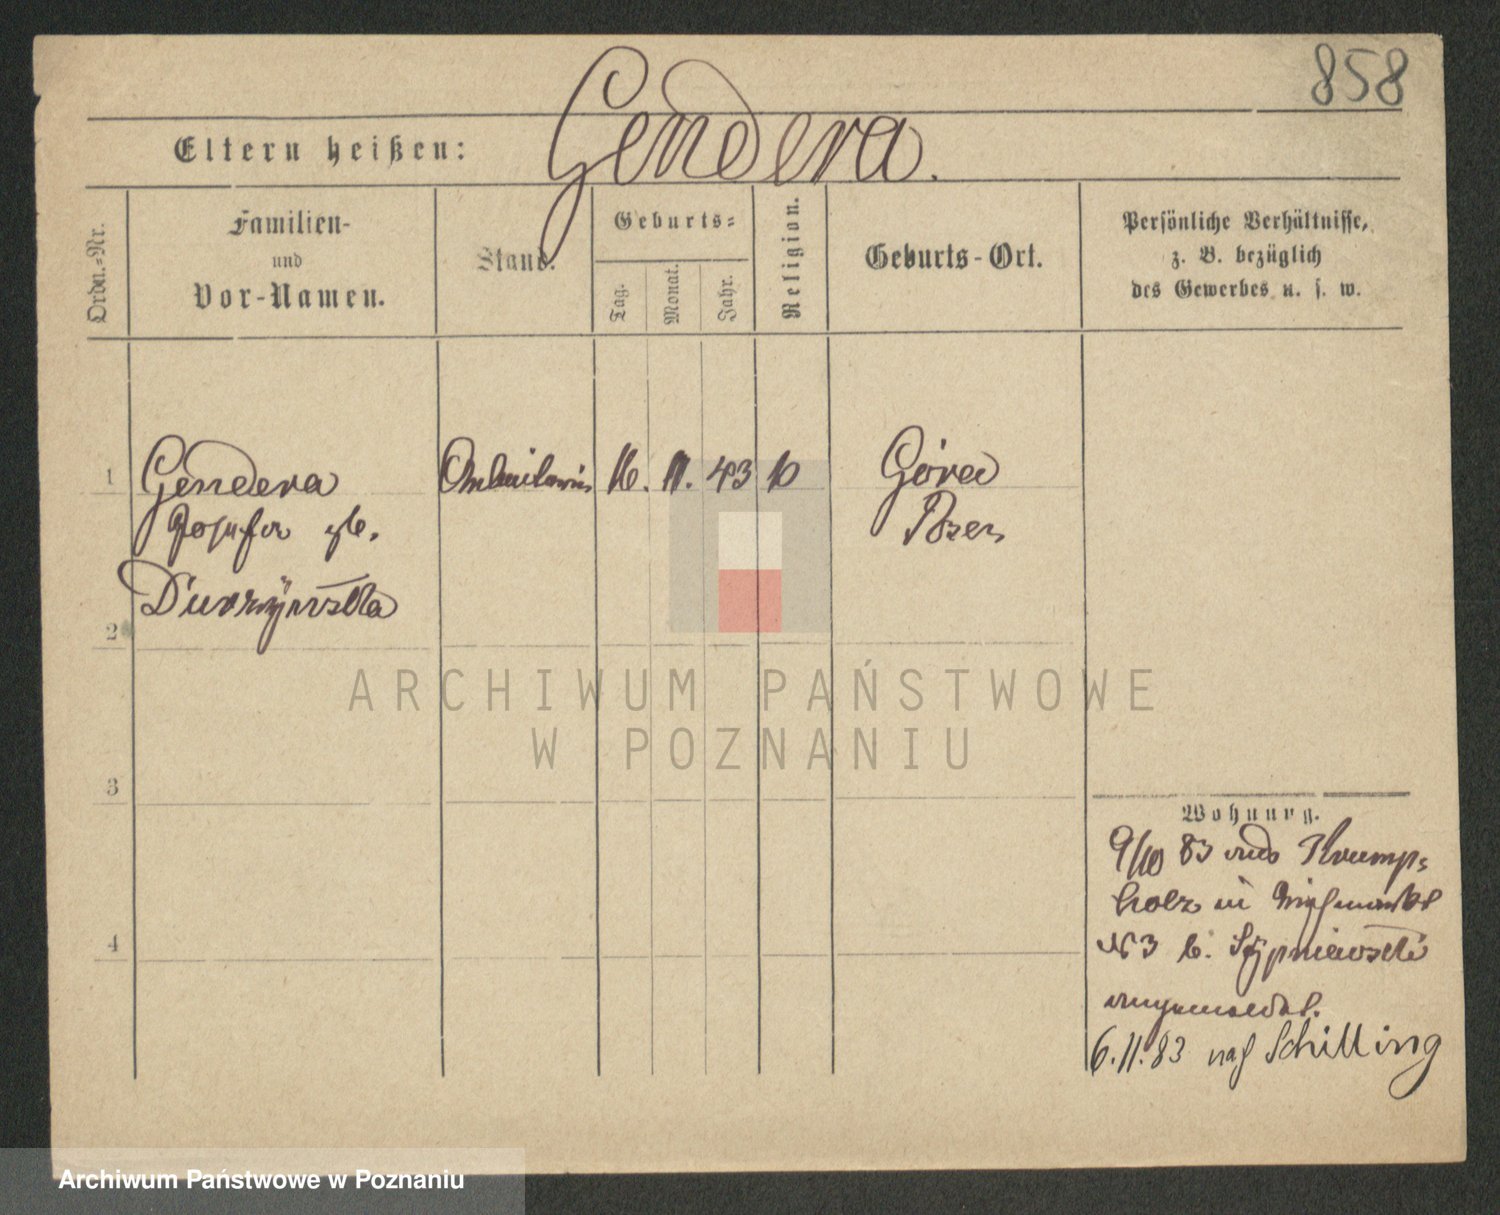 858
Gendera.
Eltern heißen:
Ordn.-Nr.
Familien-
und
Vor-Namen.
Stand.
Geburts-
Tag.
Monat.
Jahr.
Religion.
Geburts-Ort.
Persönliche Verhältnisse,
z. B. bezüglich
des Gewerbes u. s. w.
1 Gendera 16. 11. 43 Góra
Josefa
Posen
2
3
4
Wohnung.
9/10 83 aus Krump-
holz in
N 3 b. Sypniewski
angemeldet.
6.11.83 nach Schilling
ARCHIWUM PAŃSTWOWE
W POZNANIU
Archiwum Państwowe w Poznaniu